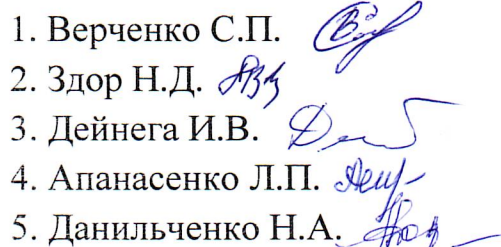 1. Верченко С.П.
2. Здор Н.Д.
3. Дейнега И.В.
4. Апанасенко Л.П.
5. Данильченко Н.А.